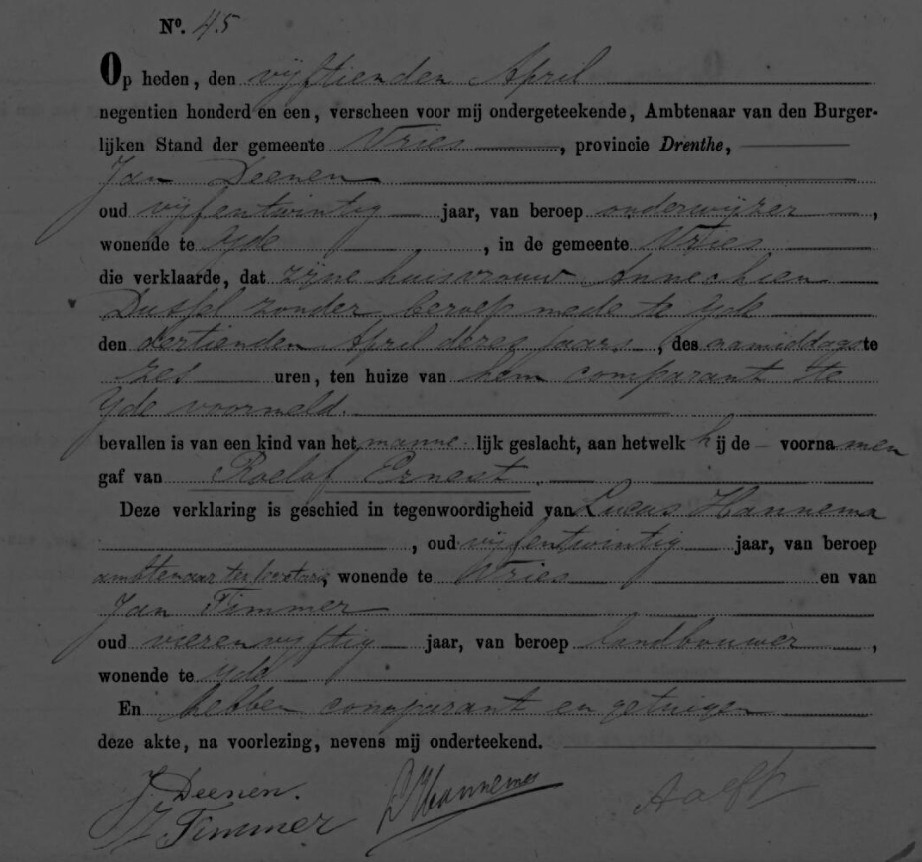 Nº. 45
Op heden, den vijftienden April
negentien honderd en een, verscheen voor mij ondergeteekende, Ambtenaar van den Burger-
lijken Stand der gemeente Vries, provincie Drenthe,
Jan Deenen
oud vijfentwintig jaar, van beroep onderwijzer,
wonende te Yde, in de gemeente Vries
die verklaarde, dat zijne huisvrouw Annechien
zonder beroep mede te Yde
den dertienden April dezes jaars, des namiddags te
zes uren, ten huize van hem comparant te
Yde voormeld.
bevallen is van een kind van het mannelijk geslacht, aan hetwelk hij de - voornamen
gaf van Roelof Ernest.
Deze verklaring is geschied in tegenwoordigheid van Lucas Hannema
, oud vijfentwintig jaar, van beroep
ambtenaar ter secretarie, wonende te Vries en van
Jan Timmer
oud vierenvijftig jaar, van beroep landbouwer,
wonende te Yde
En hebben comparant en getuigen
deze akte, na voorlezing, nevens mij onderteekend.
J. Deenen.
L Hannema
J. Timmer